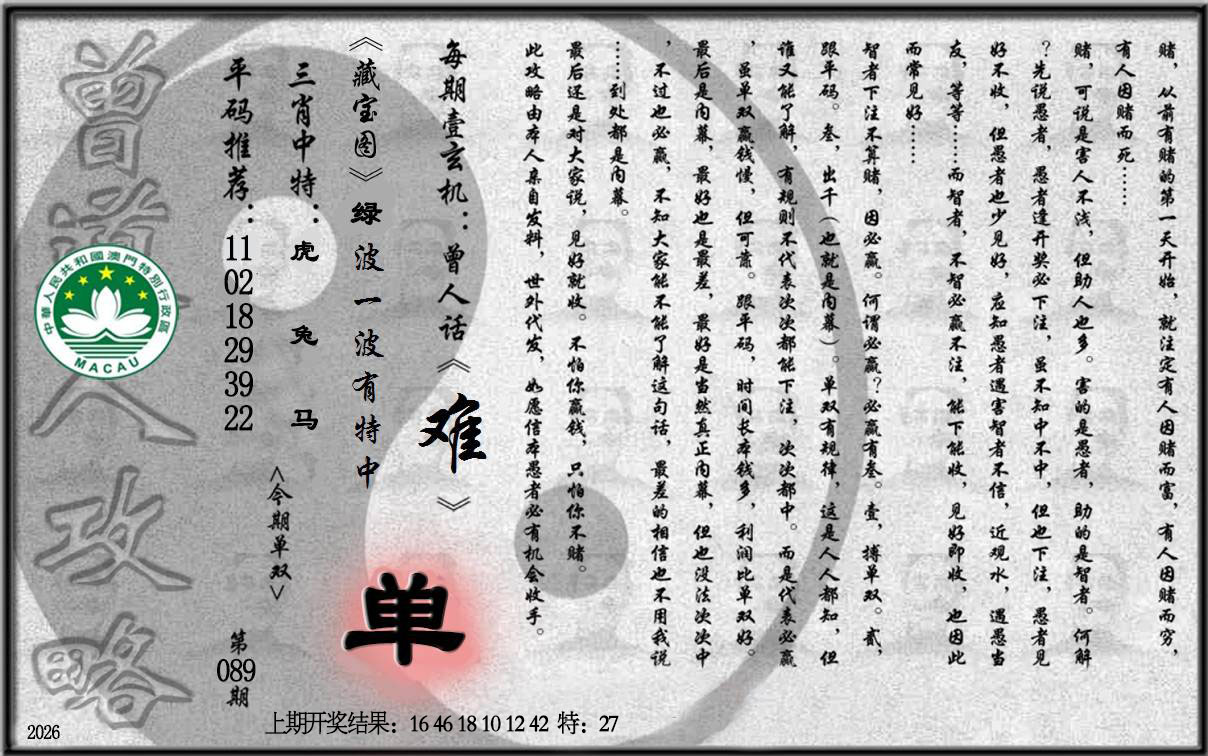 赌，从前有赌的第一天开始，就注定有人因赌而富，有人因赌而穷，
有人因赌而死……
赌，可说是害人不浅，但助人也多。害的是愚者，助的是智者。何解
？先说愚者，愚者逢开奖必下注，虽不知中不中，但也下注，愚者见
好不收，但愚者也少见好，应知愚者遇害智者不信，近观水，遇愚当
友，等等……而智者，不智必赢不注，能下能收，见好即收，也因此
而常见好……
智者下注不算赌，因必赢。何谓必赢？必赢有叁。壹，搏单双。贰，
跟平码。叁，出千（也就是内幕）。单双有规律，这是人人都知，但
谁又能了解，有规则不代表次次都能下注，次次都中。而是代表必赢
，虽单双赢钱慢，但可靠。跟平码，时间长本钱多，利润比单双好。
最后是内幕，最好也是最差，最好是当然真正内幕，但也没法次次中
，不过也必赢，不知大家能不能了解这句话，最差的相信也不用我说
……到处都是内幕。
最后还是对大家说，见好就收。不怕你赢钱，只怕你不赌。
此攻略由本人亲自发料，世外代发，如愿信本愚者必有机会收手。
每期壹玄机：曾人话《难》
《藏宝图》绿波一波有特中
单
三肖中特：虎 兔 马
<今期单双>
平码推荐：11 02 18 29 39 22
第089期
曾道人攻略
中華人民共和國澳門特別行政區
MACAU
2026
上期开奖结果：16 46 18 10 12 42 特：27